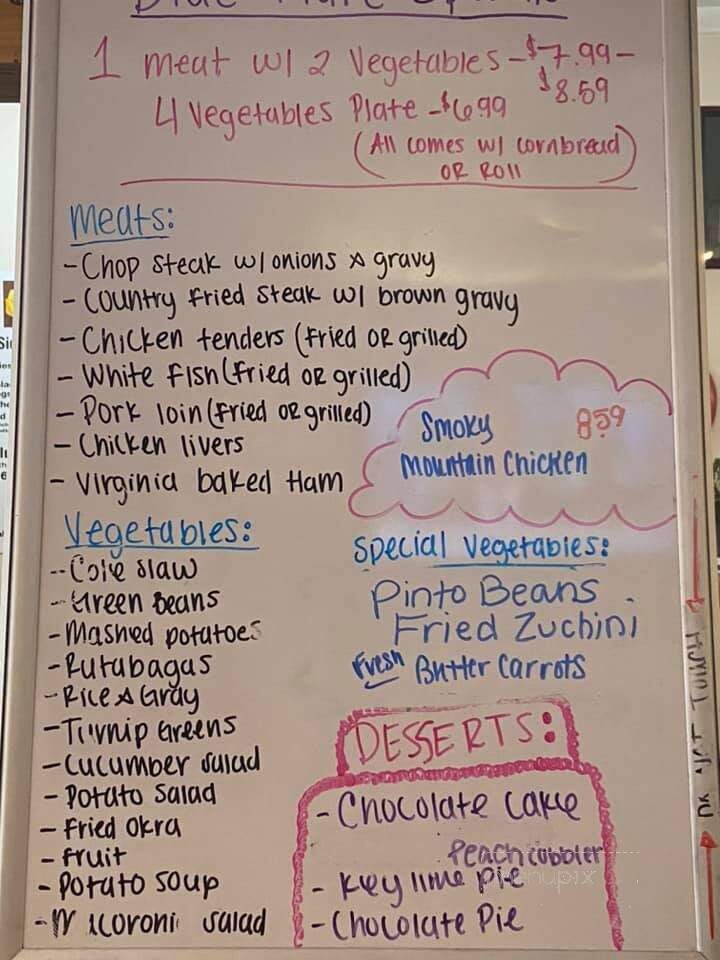 Blue Plate Specials
1 meat w/ 2 Vegetables - $7.99 -
$8.59
4 Vegetables Plate - $6.99
(All comes w/ cornbread
OR Roll)
Meats:
- Chop steak w/ onions & gravy
- Country fried steak w/ brown gravy
- Chicken tenders (fried OR grilled)
- White fish (fried OR grilled)
- Pork loin (fried OR grilled)
- Chicken livers
- Virginia baked Ham
Smoky 8.59
Mountain Chicken
Vegetables:
-- Cole slaw
- Green beans
- Mashed potatoes
- Rutabagas
- Rice & Gray
- Turnip Greens
- Cucumber salad
- Potato Salad
- Fried Okra
- fruit
- Potato soup
- Macoroni salad
Special Vegetables:
Pinto Beans
Fried Zuchini
Fresh Butter Carrots
DESSERTS:
- Chocolate cake
Peach cobbler
- Key lime pie
- Chocolate Pie
DO NOT TOUCH
menupix